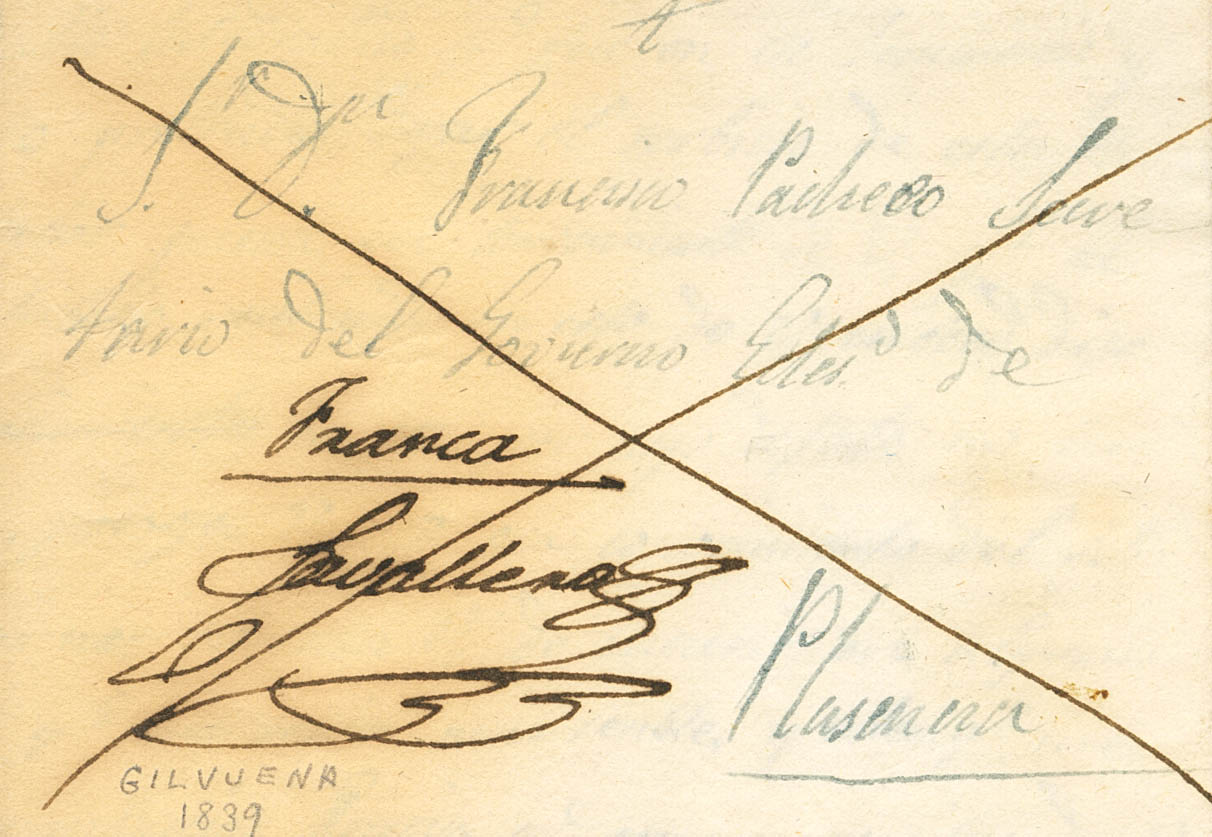 Sr. Dn. Francisco Pacheco Secre
tario del Govierno Ecles.º de
Franca
Plasencia
GILVUENA
1839